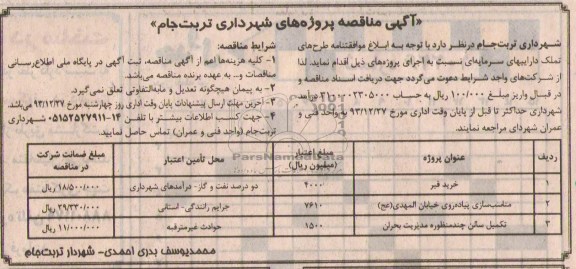 «آگهی مناقصه پروژه‌های شهرداری تربت‌جام»
شهرداری تربت‌جام درنظر دارد با توجه به ابلاغ موافقتنامه طرح‌های
تملک داراییهای سرمایه‌ای نسبت به اجرای پروژه‌های ذیل اقدام نماید. لذا
از شرکت‌های واجد شرایط دعوت می‌گردد جهت دریافت اسناد مناقصه و
در قبال واریز مبلغ ۱۰۰/۰۰۰ ریال به حساب درآمد
شهرداری حداکثر تا قبل از پایان وقت اداری مورخ ۹۳/۱۲/۲۷ به واحد فنی و
عمران شهرداری مراجعه نمایند.
شرایط مناقصه:
۱- کلیه هزینه‌ها اعم از آگهی مناقصه، ثبت آگهی در پایگاه ملی اطلاع‌رسانی
مناقصات و... به عهده برنده مناقصه می‌باشد.
۲- به پیمان هیچگونه تعدیل و مابه‌التفاوتی تعلق نمی‌گیرد.
۳- آخرین مهلت ارسال پیشنهادات پایان وقت اداری روز چهارشنبه مورخ ۹۳/۱۲/۲۷ می‌باشد.
۴- جهت کسب اطلاعات بیشتر با تلفن ۱۴-۰۵۱۵۲۵۲۷۹۱۱ شهرداری
تربت‌جام (واحد فنی و عمران) تماس حاصل نمایید.
ردیف | عنوان پروژه | مبلغ اعتبار (میلیون ریال) | محل تأمین اعتبار | مبلغ ضمانت شرکت در مناقصه
۱ | خرید قیر | ۴۰۰۰ | دو درصد نفت و گاز- درآمدهای شهرداری | ۱۸/۵۰۰/۰۰۰ ریال
۲ | مناسب‌سازی پیاده‌روی خیابان المهدی(عج) | ۷۶۱۰ | جرایم رانندگی- استانی | ۲۹/۳۳۰/۰۰۰ ریال
۳ | تکمیل سالن چندمنظوره مدیریت بحران | ۱۵۰۰ | حوادث غیرمترقبه | ۱۱/۰۰۰/۰۰۰ ریال
محمدیوسف بدری احمدی- شهردار تربت‌جام
ParsNamadData